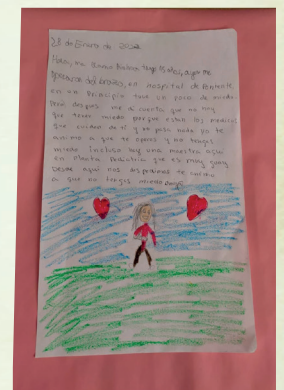 28 de Enero de 2022
Hola, me llamo tengo 13 años, ayer me
operaron del brazo, en Hospital de Poniente
en un Principio tuve un poco de miedo
Pero despues me di cuenta que no hay
que tener miedo porque estan los medicos
que cuidan de ti y no pasa nada yo te
animo a que te operes y no tengas
miedo Incluso hay una maestra aquí
en Planta Pediatria que es muy guay
Desde aquí nos despedimos te
a que no tengas miedo